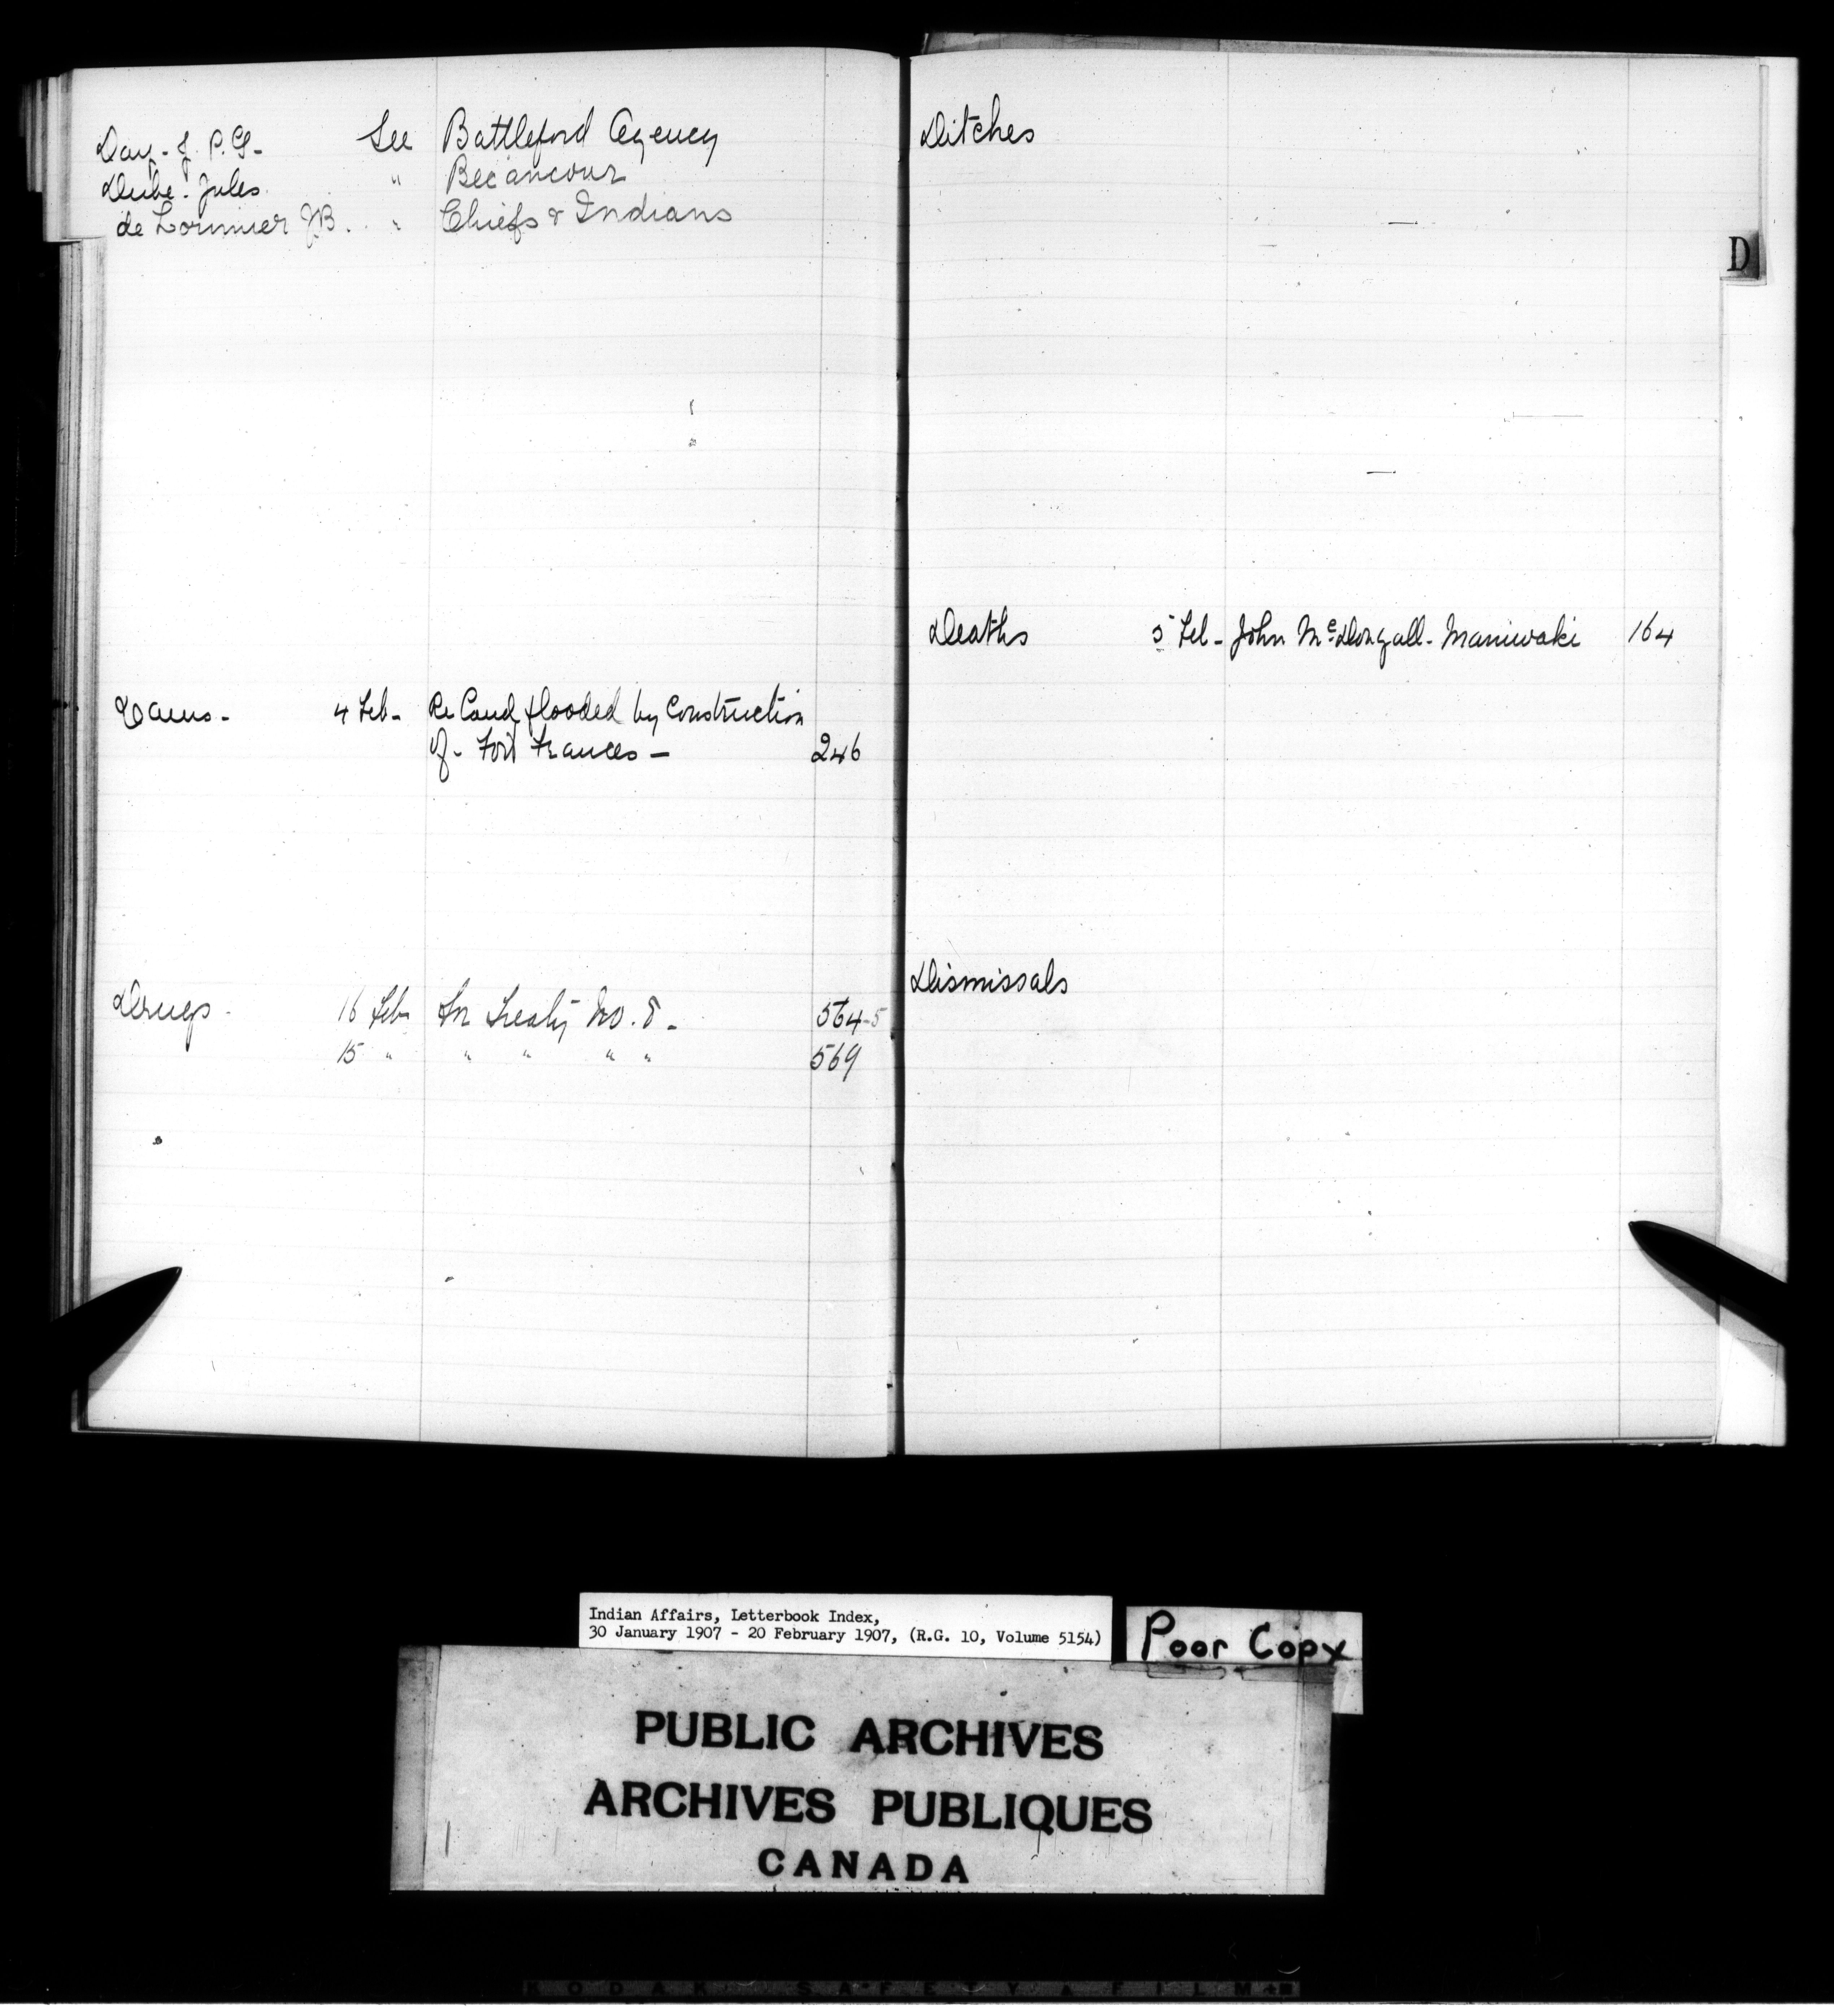 Day - J. P. G. - See Battleford Agency
Dube - Jules " Becancour
de Lorimier J.B. " Chiefs & Indians
Dams - 4 Feb - Re Land flooded by Construction
of - Fort Frances - 246
Drugs - 16 Feb For Treaty No. 8 - 564-5
15 " " " " " 569
Ditches
D
Deaths 5 Feb - John McDougall - Maniwaki 164
Dismissals
Indian Affairs, Letterbook Index,
30 January 1907 - 20 February 1907, (R.G. 10, Volume 5154)
Poor Copy
PUBLIC ARCHIVES
ARCHIVES PUBLIQUES
CANADA
KODAK SAFETY FILM